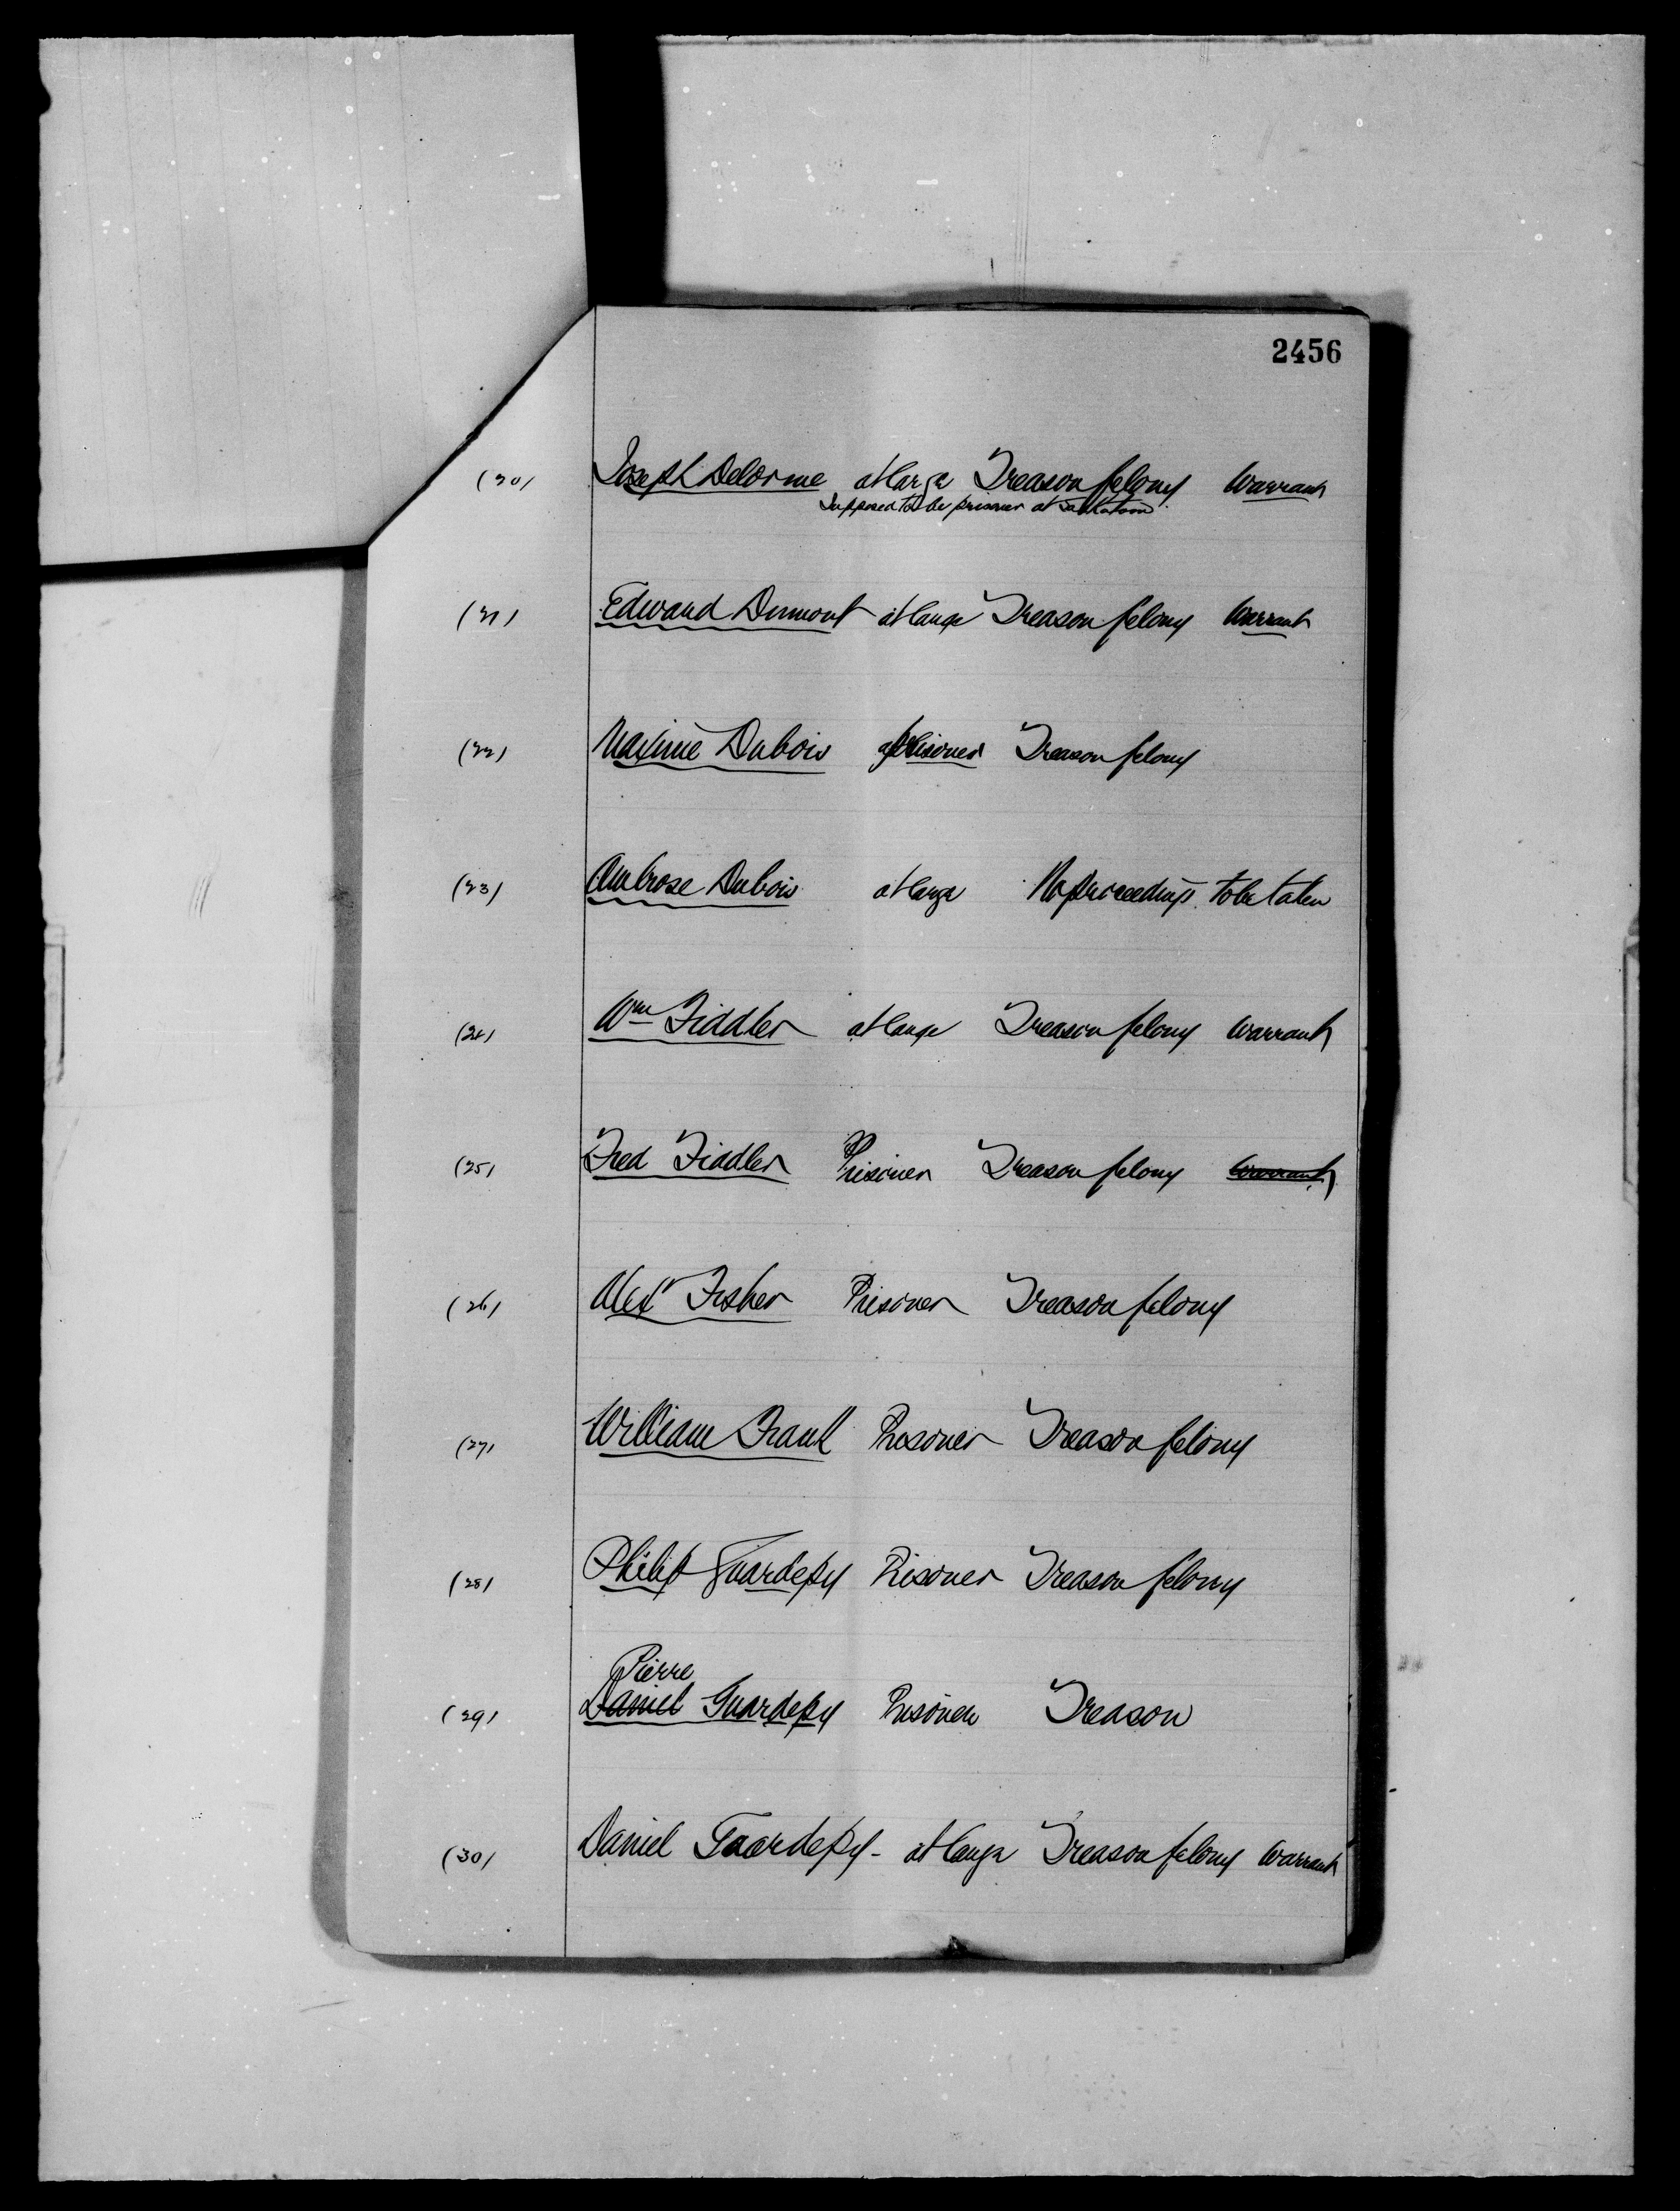 2456
(20) Joseph Delorme at large Treason felony Warrant
Supposed to be prisoner at Saskatoon
(21) Edward Dumont at large Treason felony Warrant
(22) Maxime Dubois prisoner Treason felony
(23) Ambrose Dubois at large No proceedings to be taken
(24) Wm Fiddler at large Treason felony Warrant
(25) Fred Fiddler Prisoner Treason felony Warrant
(26) Alex Fisher Prisoner Treason felony
(27) William Frank Prisoner Treason felony
(28) Philip Guardepy Prisoner Treason felony
Pierre
(29) Daniel Guardepy Prisoner Treason
(30) Daniel Guardepy - at large Treason felony Warrant